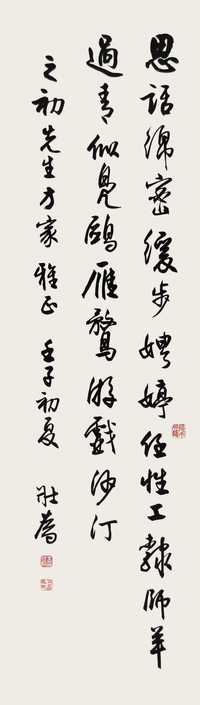 思話綿密緩步娉婷任性工隸師羊
過青似鳧鷗雁鶩游戲沙汀
之初先生方家雅正 壬子初夏